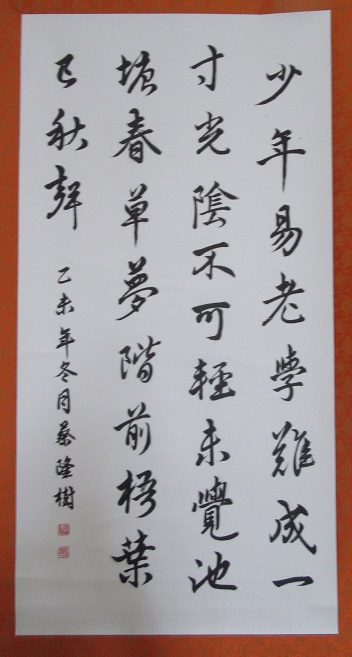 少年易老學難成一
寸光陰不可輕未覺池
塘春草夢階前梧葉
已秋聲
乙未年冬月蔡隆樹